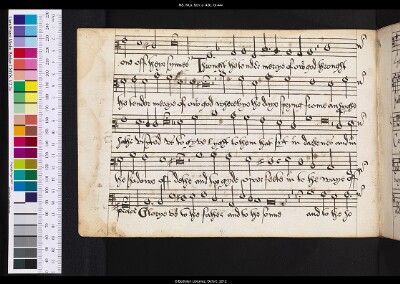 and off theyr synnes Throughe the tender mercye of our god throughe
the tender mercye of our god wherebye the daye spring from an hyghe
hathe visited us to gyve lyght to them that sit in darknes and in
the shadowe off dethe and to gyde owr feete in to the waye of
peace Glorye be to the father and to the sonne and to the ho
©Bodleian Libraries, Oxford, 2012